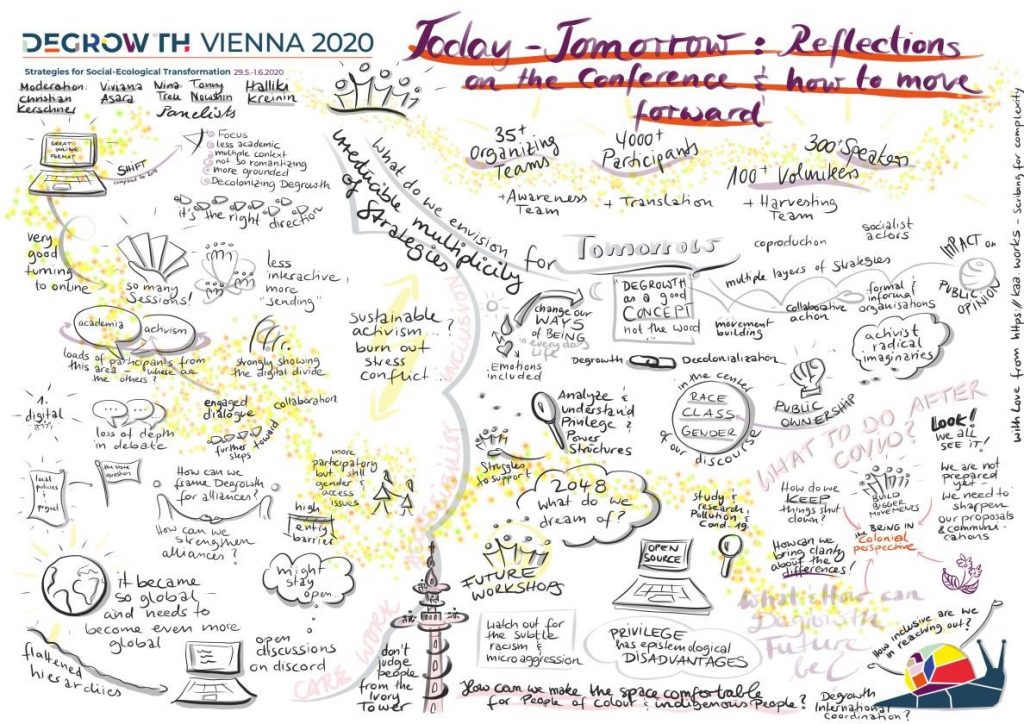 DEGROWTH VIENNA 2020
Strategies for Social-Ecological Transformation 29.5.-1.6.2020
Today - Tomorrow: Reflections
on the Conference & how to move
forward
Moderation:
Christian
Kerschner
Viviana
Asara
Nina
Treu
Tonny
Nowshin
Hallika
Kreinin
Panelists
35+
Organizing
Teams
4000+
Participants
300+ Speakers
100+ Volunteers
+ Awareness
Team
+ Translation
+ Harvesting
Team
GREAT
ONLINE
FORMAT
SHIFT
Focus
less academic
multiple context
not so romantizing
more grounded
Decolonizing Degrowth
it's the right direction
What do we envision
for Tomorrow
irreducible multiplicity
of Strategies
Very
good
turning
to online
so many
Sessions!
less
interactive,
more
"sending"
academia
activism
loads of participants from
this area - where are
the others?
strongly showing
the digital divide
sustainable
activism...?
burn out
stress
conflict...
INCLUSION
ACCESSIBILITY
CARE WORK
change our
WAYS
of BEING
in everyday
Life
Emotions
included
"DEGROWTH
as a good
CONCEPT
not the word"
coproduction
socialist
actors
multiple layers of strategies
movement
building
collaborative
action
formal &
informal
organisations
IMPACT on
PUBLIC
OPINION
activist
radical
imaginaries
Degrowth
Decolonialization
1.
digital
loss of depth
in debate
engaged
dialogue
collaboration
further
steps
toward
Analyze &
understand
Privilege &
Power
Structures
in the center
RACE
CLASS
GENDER
of our discourse
PUBLIC
OWNERSHIP
WHAT TO DO AFTER
COVID?
LOOK!
we all
SEE IT!
Struggles
to support
local
policies &
project
the state
question
How can we
frame Degrowth
for alliances?
How can we
strengthen
alliances?
more
participatory
but still
gender &
access
issues
high
entry
barrier
2048
what do we
dream of?
study &
research
Pollution &
Covid-19
How do we
KEEP
things shut
down?
BUILD
BIGGER
MOVEMENTS
BEING IN
the Colonial
perspective
We are not
prepared
yet -
we need to
sharpen
our proposals
& communi-
cations
How can we
bring clarity
about the
differences!
it became
so global
and needs to
become even more
global
might
stay
open...
FUTURE
WORKSHOPS
OPEN
SOURCE
What & How can
Degrowth
Future
be?
flattened
hierarchies
open
discussions
on discord
don't
judge
people
from the
Ivory
Tower
Watch out for
the subtle
racism &
microaggression
PRIVILEGE
has epistemological
DISADVANTAGES
How can we make the space comfortable
for People of Colour & indigenous People?
How inclusive are we
in reaching out?
Degrowth
International
coordination?
with Love from https://kaa.works - scribing for complexity